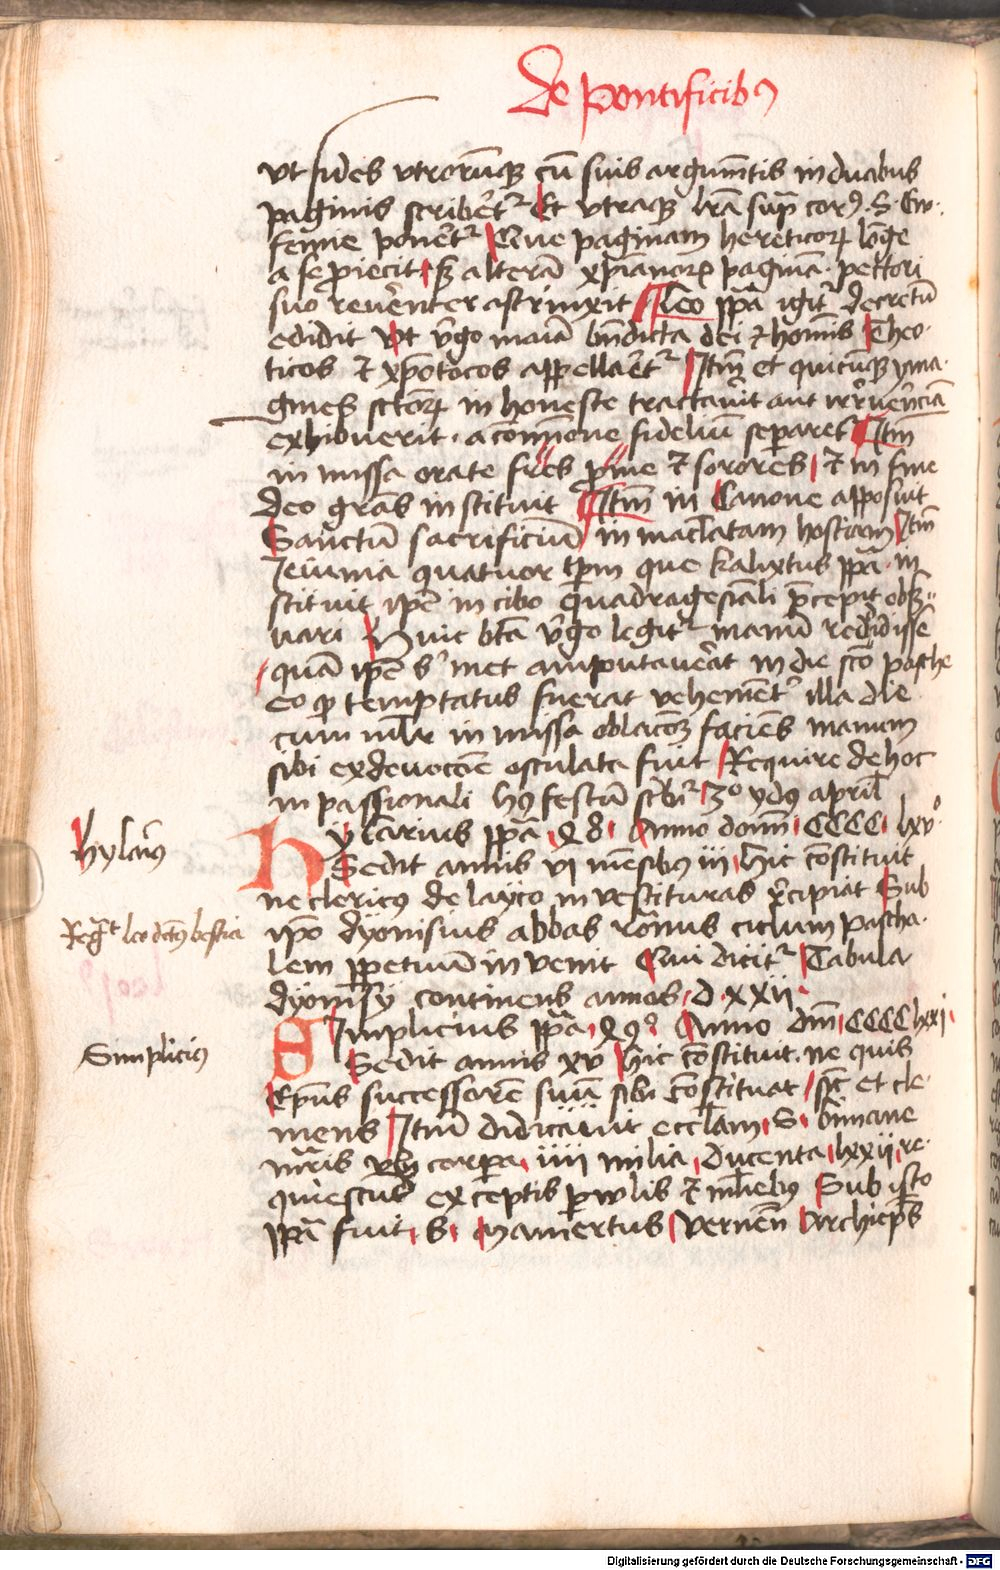 De Pontificibus
vt fides vtrorumque cum suis argumentis in duabus
paginis scriberetur Et vtraque littera supra corpus S. Eu-
femie poneretur Que paginam hereticorum longe
a se proiecit sed alteram christianorum paginam pectori
suo reuerenter astrinxit Leo papa igitur decretum
edidit Vt virgo maria benedicta dei et hominis Theo-
ticos et christotocos appellaretur Item et quicumque yma-
gines sanctorum in honeste tractauerit aut irreuerenciam
exhibuerit a communione fidelium separetur Item
in missa orate fratres pro me et sorores et in fine
deo gracias instituit Item in Canone apposuit
Sanctum sacrificium inmaculatam hostiam Item
Ieiunia quatuor temporum que kalixtus papa in-
stituit ipse in cibo quadragesimali precepit obser-
uari Huic beata virgo legitur manum reddidisse
quam ipse sibimet amputauerat in die sancto pasche
eo quod temptatus fuerat vehementer illa die
cum mulier in missa oblacionem faciens manum
sibi ex deuocione osculata fuit Require de hoc
in passionali huius festum scribitur 3o ydus aprilis
Hylarius
Hylarius papa 48 Anno domini CCCC lxvo
Sedit annis vi mensibus iii Hic constituit
ne clericus de layco inuestituras recipiat Sub
Regnat leo dictus bestia
ipso dyonisius abbas romanus ciclum Pascha-
lem perpetuum inuenit Qui dicitur Tabula
dyonisy continens annos D xxii
Simplicius papa 49 Anno domini CCCC lxxi
Simplicius
Sedit annis xv Hic constituit ne quis
Episcopus successorem suum sibi constituat sicut et cle-
mens Item didicauit ecclesiam S. biuiane
martiris vbi corpora iiii milia ducenta lxxii re-
quiescunt exceptis paruulis et mulieribus Sub isto
papa fuit S. Mamertus vernensis Archiepiscopus
Digitalisierung gefördert durch die Deutsche Forschungsgemeinschaft - DFG